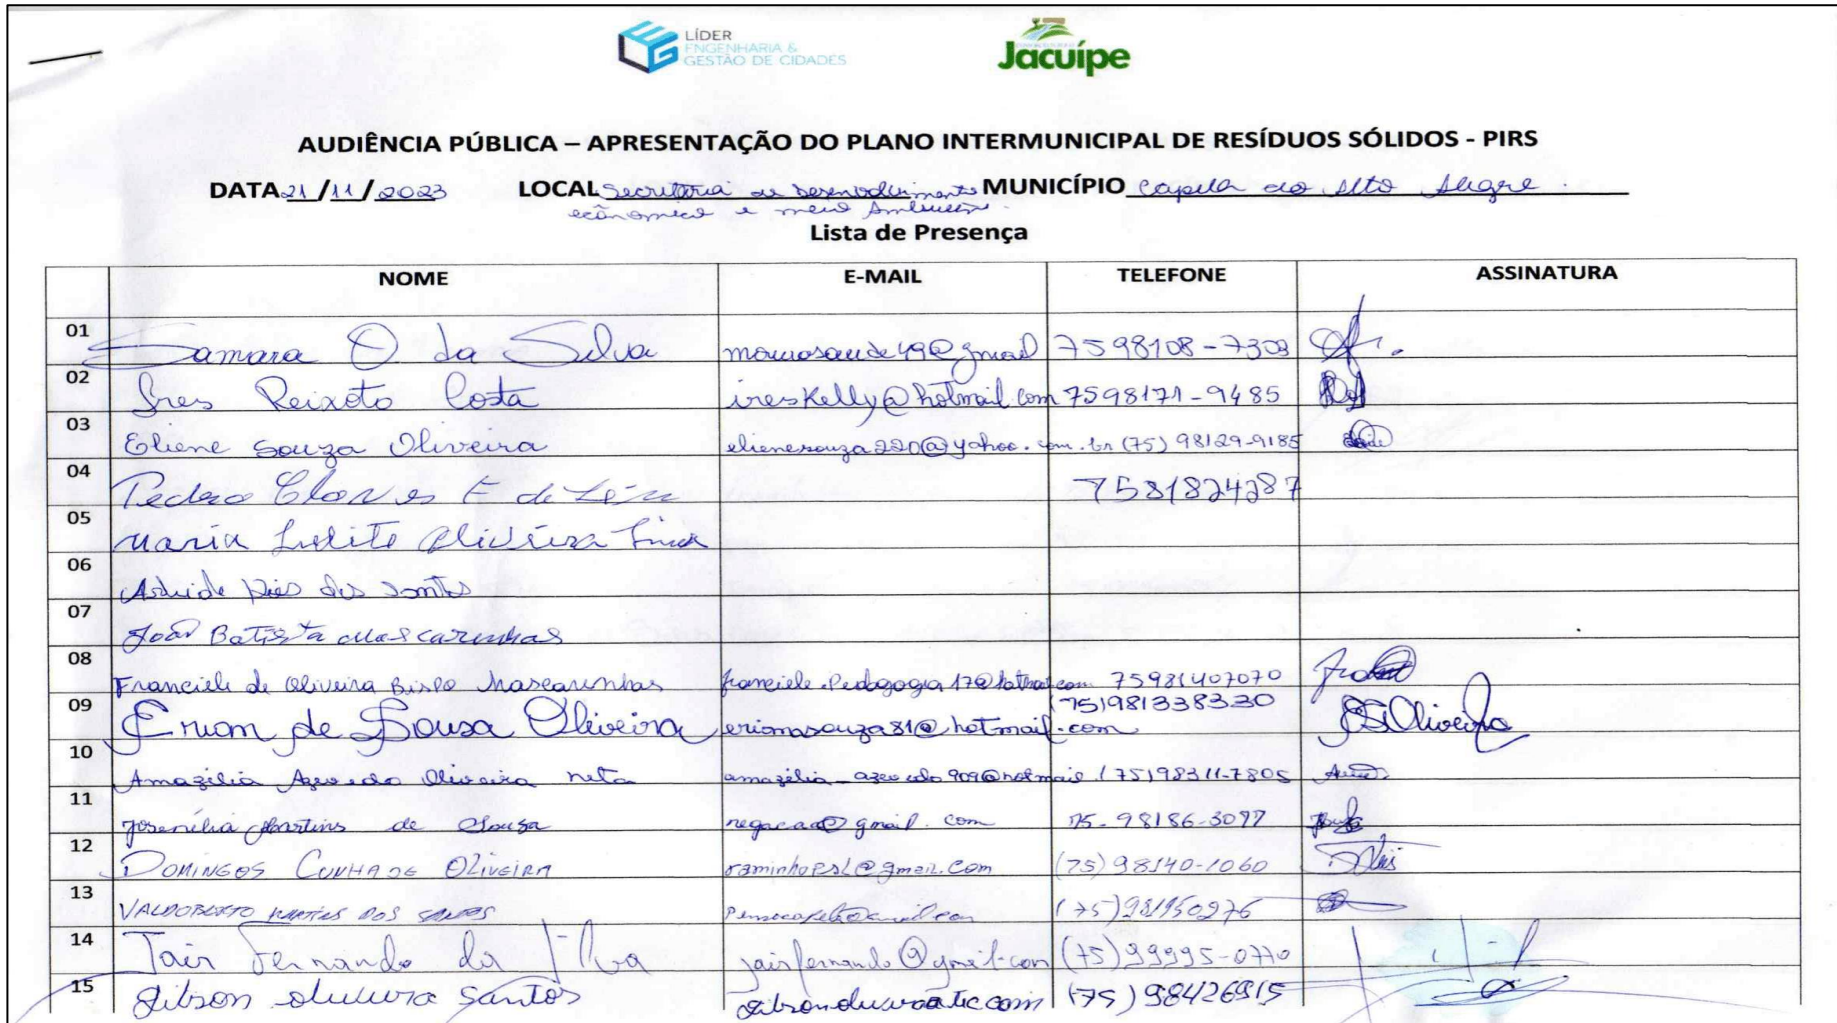 LÍDER
ENGENHARIA &
GESTÃO DE CIDADES
Jacuípe
AUDIÊNCIA PÚBLICA – APRESENTAÇÃO DO PLANO INTERMUNICIPAL DE RESÍDUOS SÓLIDOS - PIRS
DATA 21/11/2023 LOCAL Secretaria de Desenvolvimento MUNICÍPIO Capela do Alto Alegre.
econômico e meio Ambiente.
Lista de Presença
NOME E-MAIL TELEFONE ASSINATURA
01 Samara O da Silva @gmail 7598108-7309
02 Ires Peixoto Costa ireskelly@hotmail.com 7598171-9485
03 Eliene Souza Oliveira elienesouza220@yahoo.com.br (75) 98129-9185
04 Pedro
05 Maria Oliveira Lima
06 dos Santos
07 João Batista Mascarenhas
08 Franciele de Oliveira Bispo Mascarenhas franciele.Pedagogia17@hotmail.com 75981407070
09 Eriom de Sousa Oliveira eriomsouza81@hotmail.com (75)981338330 Oliveira
10 Amazilia Azevedo Oliveira neta amazilia_azevedo909@hotmail (75)98311-7805
11 Josenilia Martins de Souza @gmail.com 75-98186-3077
12 DOMINGOS CUNHA DE OLIVEIRA @gmail.com (75) 98140-1060
13 VALDOBERTO MARTINS DOS SANTOS (75)981950276
14 Jair Fernando da Silva jairfernando@gmail.com (75)99995-0770
15 Gilson Santos (75) 98426915